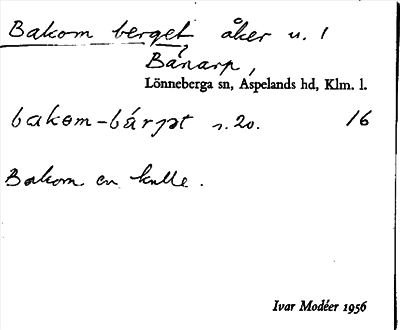 Bakom berget åker u. 1
Bånarp,
Lönneberga sn, Aspelands hd, Klm. l.
bakom-bárjət s. 20. 16
Bakom en kulle.
Ivar Modéer 1956